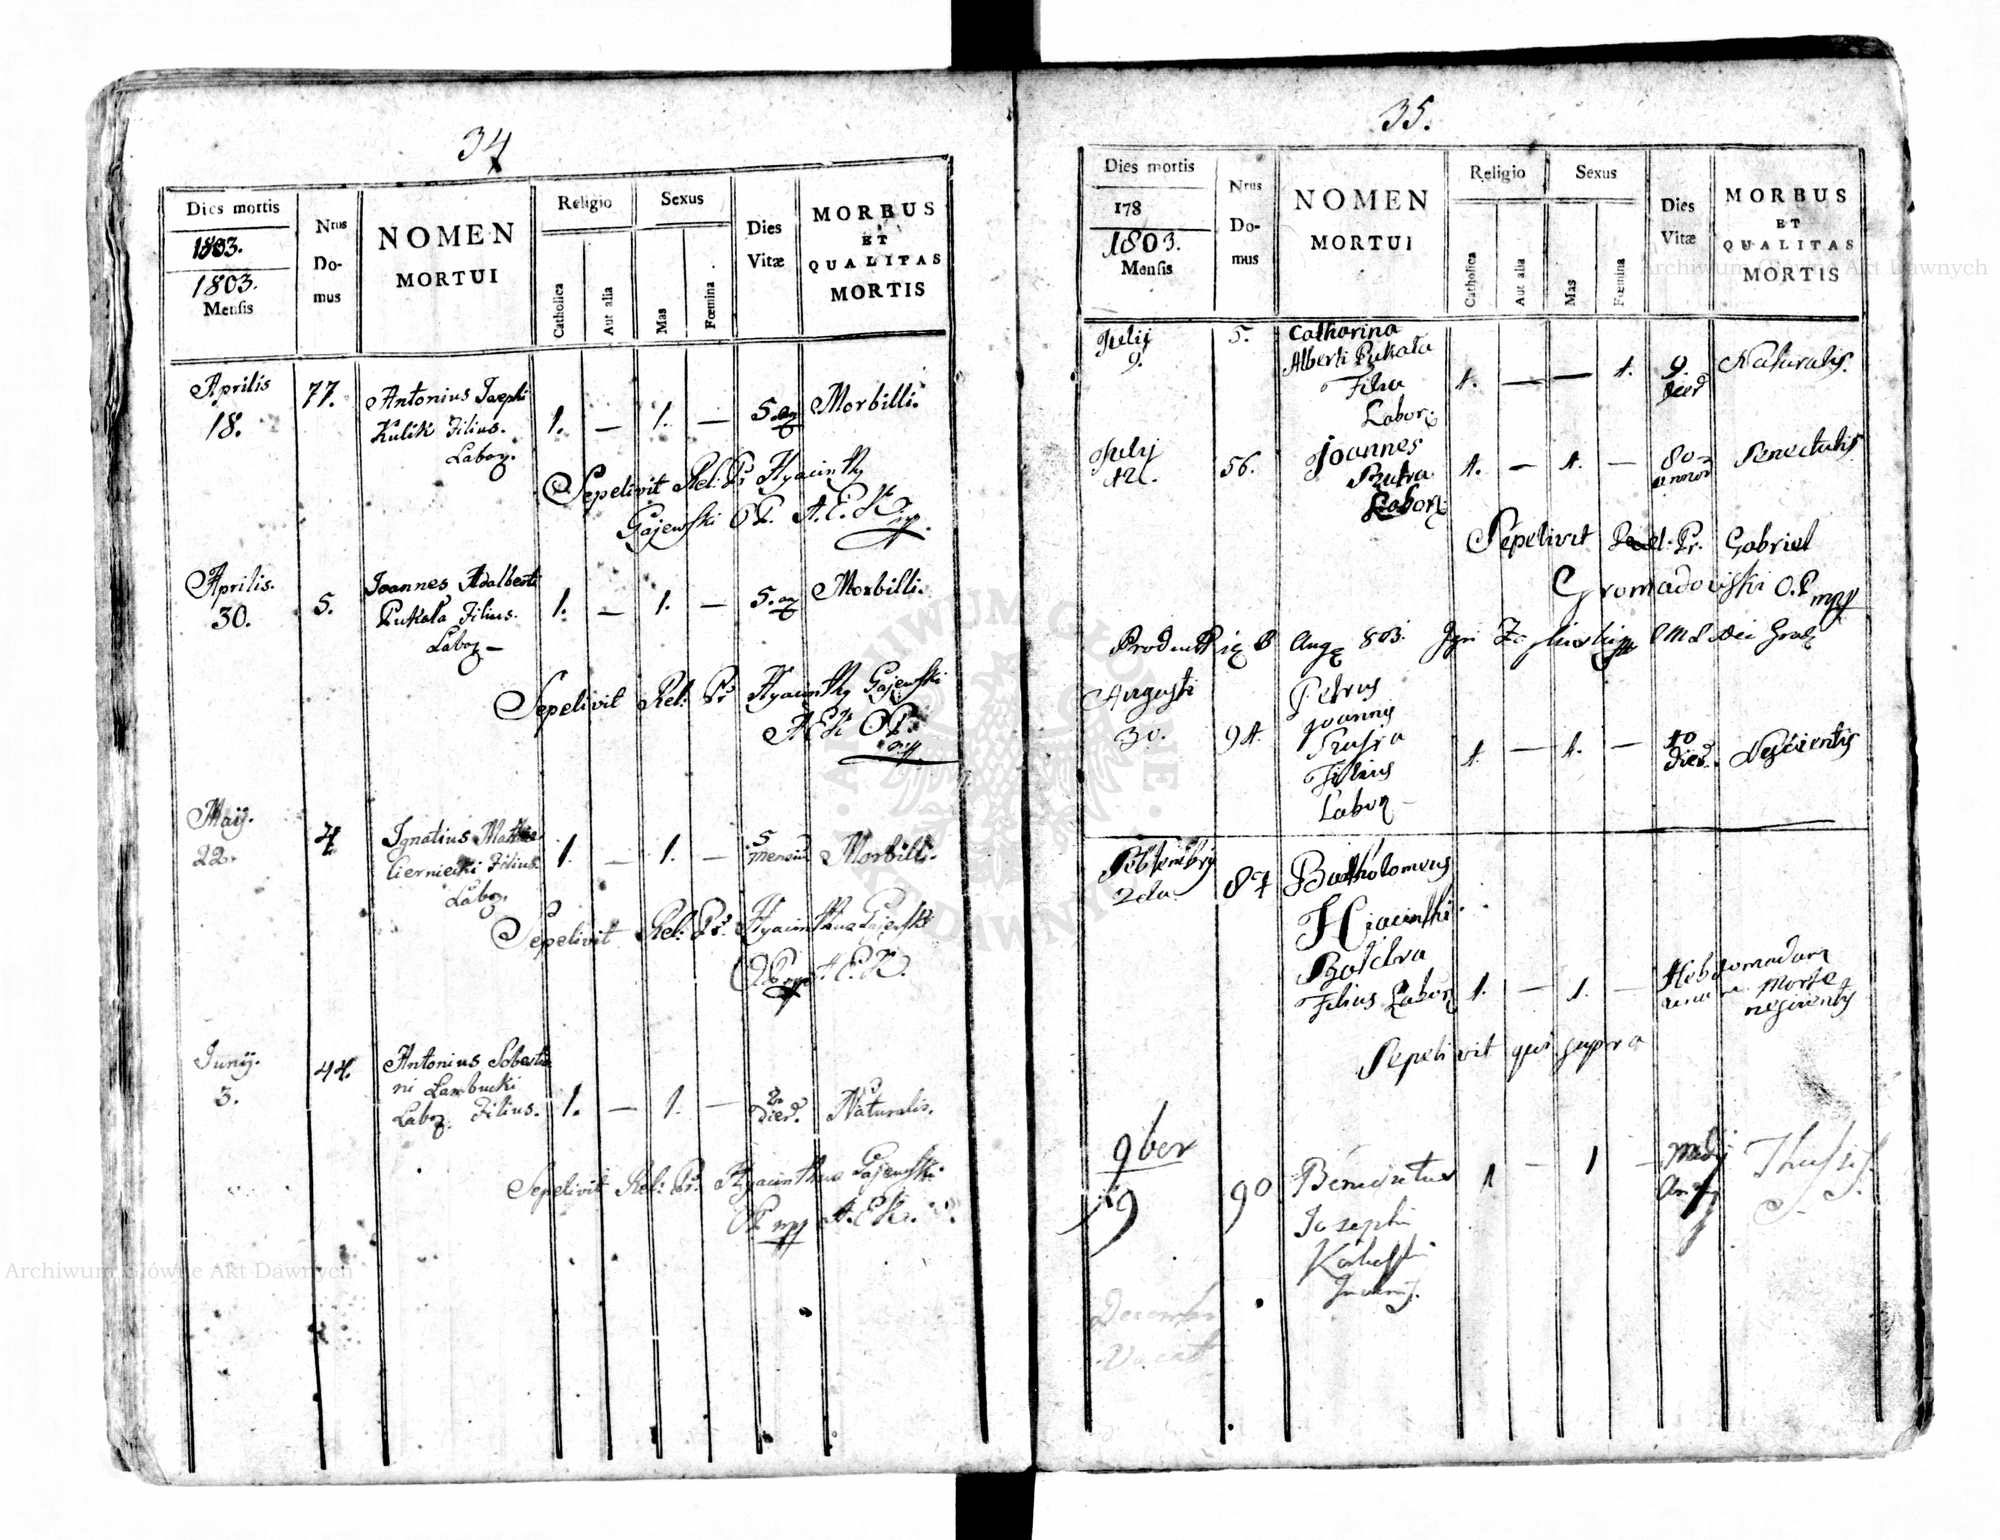 34
Dies mortis
1803.
1803.
Mensis
Nrus
Do-
mus
NOMEN
MORTUI
Religio
Catholica
Aut alia
Sexus
Mas
Fœmina
Dies
Vitæ
MORBUS
ET
QUALITAS
MORTIS
Aprilis
18.
77.
Antonius Josephi
Kulik Filius.
Labor.
1. — 1. — 5. an
Morbilli.
Sepelivit Rel: Pr Hyacinthg
Gajewski OP. A.E.K mp.
Aprilis.
30.
5.
Joannes Adalberti
Pukala Filius.
Labor —
1. — 1. — 5. an
Morbilli.
Sepelivit Rel: Pr Hyacinthg Gajewski
A E K O P.
mp.
Maij.
22.
4.
Ignatius Mathia
Cierniecki Filius.
Labor.
1. — 1. — 5
mensiu
Morbilli.
Sepelivit Rel: Pr. Hyacinthus Gajewski
OP. mp A. E. K.
Junij.
3.
44.
Antonius Sobestia
ni Lambucki
Labor. Filius.
1. — 1. — 2.
Dierd.
Naturalis.
Sepelivit Rel: Pr. Hyacinthus Gajewski
OP. mpp A. E. K.
35.
Dies mortis
178
1803.
Mensis
Nrus
Do-
mus
NOMEN
MORTUI
Religio
Catholica
Aut alia
Sexus
Mas
Fœmina
Dies
Vitæ
MORBUS
ET
QUALITAS
MORTIS
Julij
9.
5.
Catharina
Alberti Pukala
Filia
Labor:
1. — — 1. 9.
Dierd
Naturalis.
Julij
12.
56.
Joannes
Butra
Labor
1. — 1. — 80
annord
Senectutis
Sepelivit Rel: Pr. Gabriel
Gromadowiski O.P mpp
8 Aug 803.
Augusti
30.
94.
Petrus
Joannis
Filius
Labor —
1. — 1. — 10
Dierd.
Nescientis
Septembrg
2da
87
Bartholomeus
Hiacinthi
Filius Labor
1. — 1. — Hebdomadam
unam Morte
nescientis
Sepelivit qui supra
9ber
19
90
Benedictus
Josephi
1 — 1 — Medij
Anni
Thussis.
December
Vacat
Archiwum Główne Akt Dawnych
Archiwum Główne Akt Dawnych
ARCHIWUM GŁÓWNE · AKT DAWNYCH ·